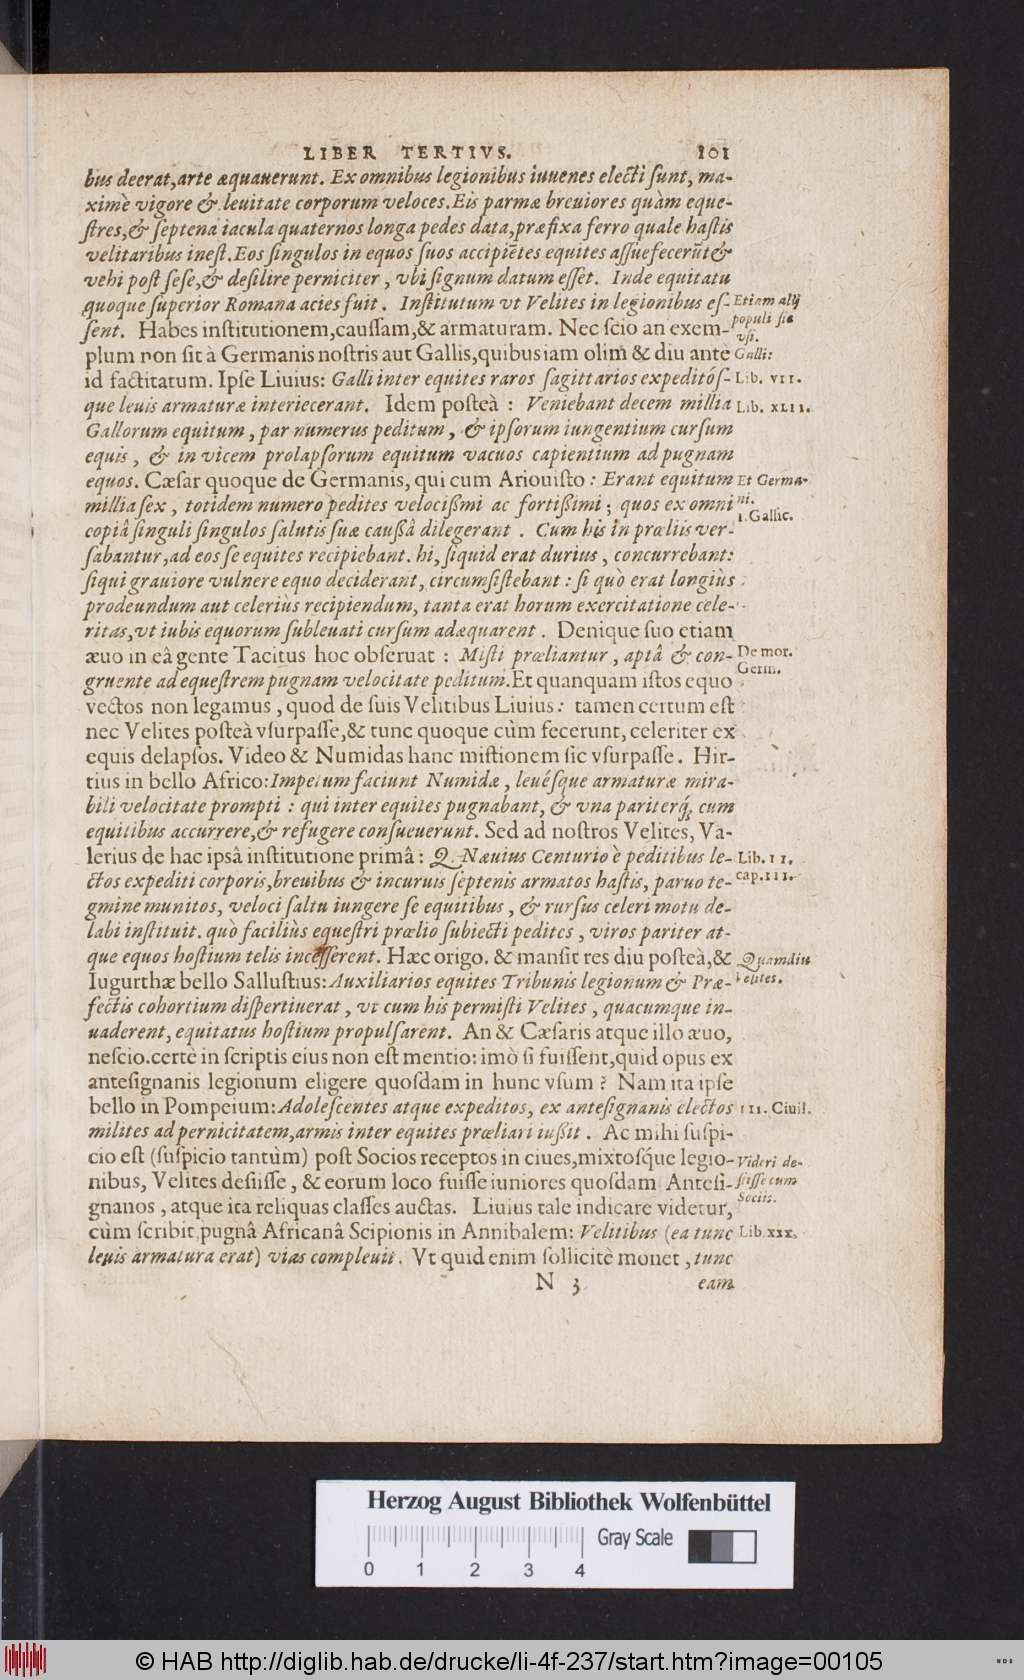 LIBER TERTIVS. 101
bus deerat, arte æquauerunt. Ex omnibus legionibus iuuenes electi sunt, ma-
ximè vigore & leuitate corporum veloces. Eis parmæ breuiores quàm eque-
stres, & septena iacula quaternos longa pedes data, præfixa ferro quale hastis
velitaribus inest. Eos singulos in equos suos accipiẽtes equites assuefecerũt &
vehi post sese, & desilire perniciter, vbi signum datum esset. Inde equitatu
quoque superior Romana acies fuit. Institutum vt Velites in legionibus es-
sent. Habes institutionem, caussam, & armaturam. Nec scio an exem-
plum non sit à Germanis nostris aut Gallis, quibus iam olim & diu antè
id factitatum. Ipse Liuius: Galli inter equites raros sagittarios expeditós-
que leuis armaturæ interiecerant. Idem posteà: Veniebant decem millia
Gallorum equitum, par numerus peditum, & ipsorum iungentium cursum
equis, & in vicem prolapsorum equitum vacuos capientium ad pugnam
equos. Cæsar quoque de Germanis, qui cum Ariouisto: Erant equitum
millia sex, totidem numero pedites velocißimi ac fortißimi; quos ex omni
copiâ singuli singulos salutis suæ caußâ dilegerant. Cum his in prœliis ver-
sabantur, ad eos se equites recipiebant. hi, si quid erat durius, concurrebant:
si qui grauiore vulnere equo deciderant, circumsistebant: si quò erat longiùs
prodeundum aut celeriùs recipiendum, tanta erat horum exercitatione cele-
ritas, vt iubis equorum subleuati cursum adæquarent. Denique suo etiam
æuo in eâ gente Tacitus hoc obseruat: Misti prœliantur, aptâ & con-
gruente ad equestrem pugnam velocitate peditum. Et quanquam istos equo
vectos non legamus, quod de suis Velitibus Liuius: tamen certum est
nec Velites posteà vsurpasse, & tunc quoque cùm fecerunt, celeriter ex
equis delapsos. Video & Numidas hanc mistionem sic vsurpasse. Hir-
tius in bello Africo: Impetum faciunt Numidæ, leuésque armaturæ mira-
bili velocitate prompti: qui inter equites pugnabant, & vna pariterq́; cum
equitibus accurrere, & refugere consueuerunt. Sed ad nostros Velites, Va-
lerius de hac ipsâ institutione primâ: Q. Næuius Centurio è peditibus le-
ctos expediti corporis, breuibus & incuruis septenis armatos hastis, paruo te-
gmine munitos, veloci saltu iungere se equitibus, & rursus celeri motu de-
labi instituit. quò faciliùs equestri prœlio subiecti pedites, viros pariter at-
que equos hostium telis incesserent. Hæc origo. & mansit res diu posteà, &
Iugurthæ bello Sallustius: Auxiliarios equites Tribunis legionum & Præ-
fectis cohortium dispertiuerat, vt cum his permisti Velites, quacumque in-
uaderent, equitatus hostium propulsarent. An & Cæsaris atque illo æuo,
nescio. certè in scriptis eius non est mentio: imò si fuissent, quid opus ex
antesignanis legionum eligere quosdam in hunc vsum? Nam ita ipse
bello in Pompeium: Adolescentes atque expeditos, ex antesignanis electos
milites ad pernicitatem, armis inter equites prœliari iußit. Ac mihi suspi-
cio est (suspicio tantùm) post Socios receptos in ciues, mixtosq́ue legio-
nibus, Velites desiisse, & eorum loco fuisse iuniores quosdam Antesi-
gnanos, atque ita reliquas classes auctas. Liuius tale indicare videtur,
cùm scribit pugnâ Africanâ Scipionis in Annibalem: Velitibus (ea tunc
leuis armatura erat) vias compleuit. Vt quid enim sollicitè monet, tunc
N 3 eam
Etiam alij
populi sic
vsi.
Galli:
Lib. VII.
Lib. XLII.
Et Germa-
ni.
I. Gallic.
De mor.
Germ.
Lib. II.
cap. III.
Quamdiu
Velites.
III. Ciuil.
Videri de-
siisse cum
Sociis.
Lib. XXX.
Herzog August Bibliothek Wolfenbüttel
Gray Scale
0 1 2 3 4
© HAB http://diglib.hab.de/drucke/li-4f-237/start.htm?image=00105